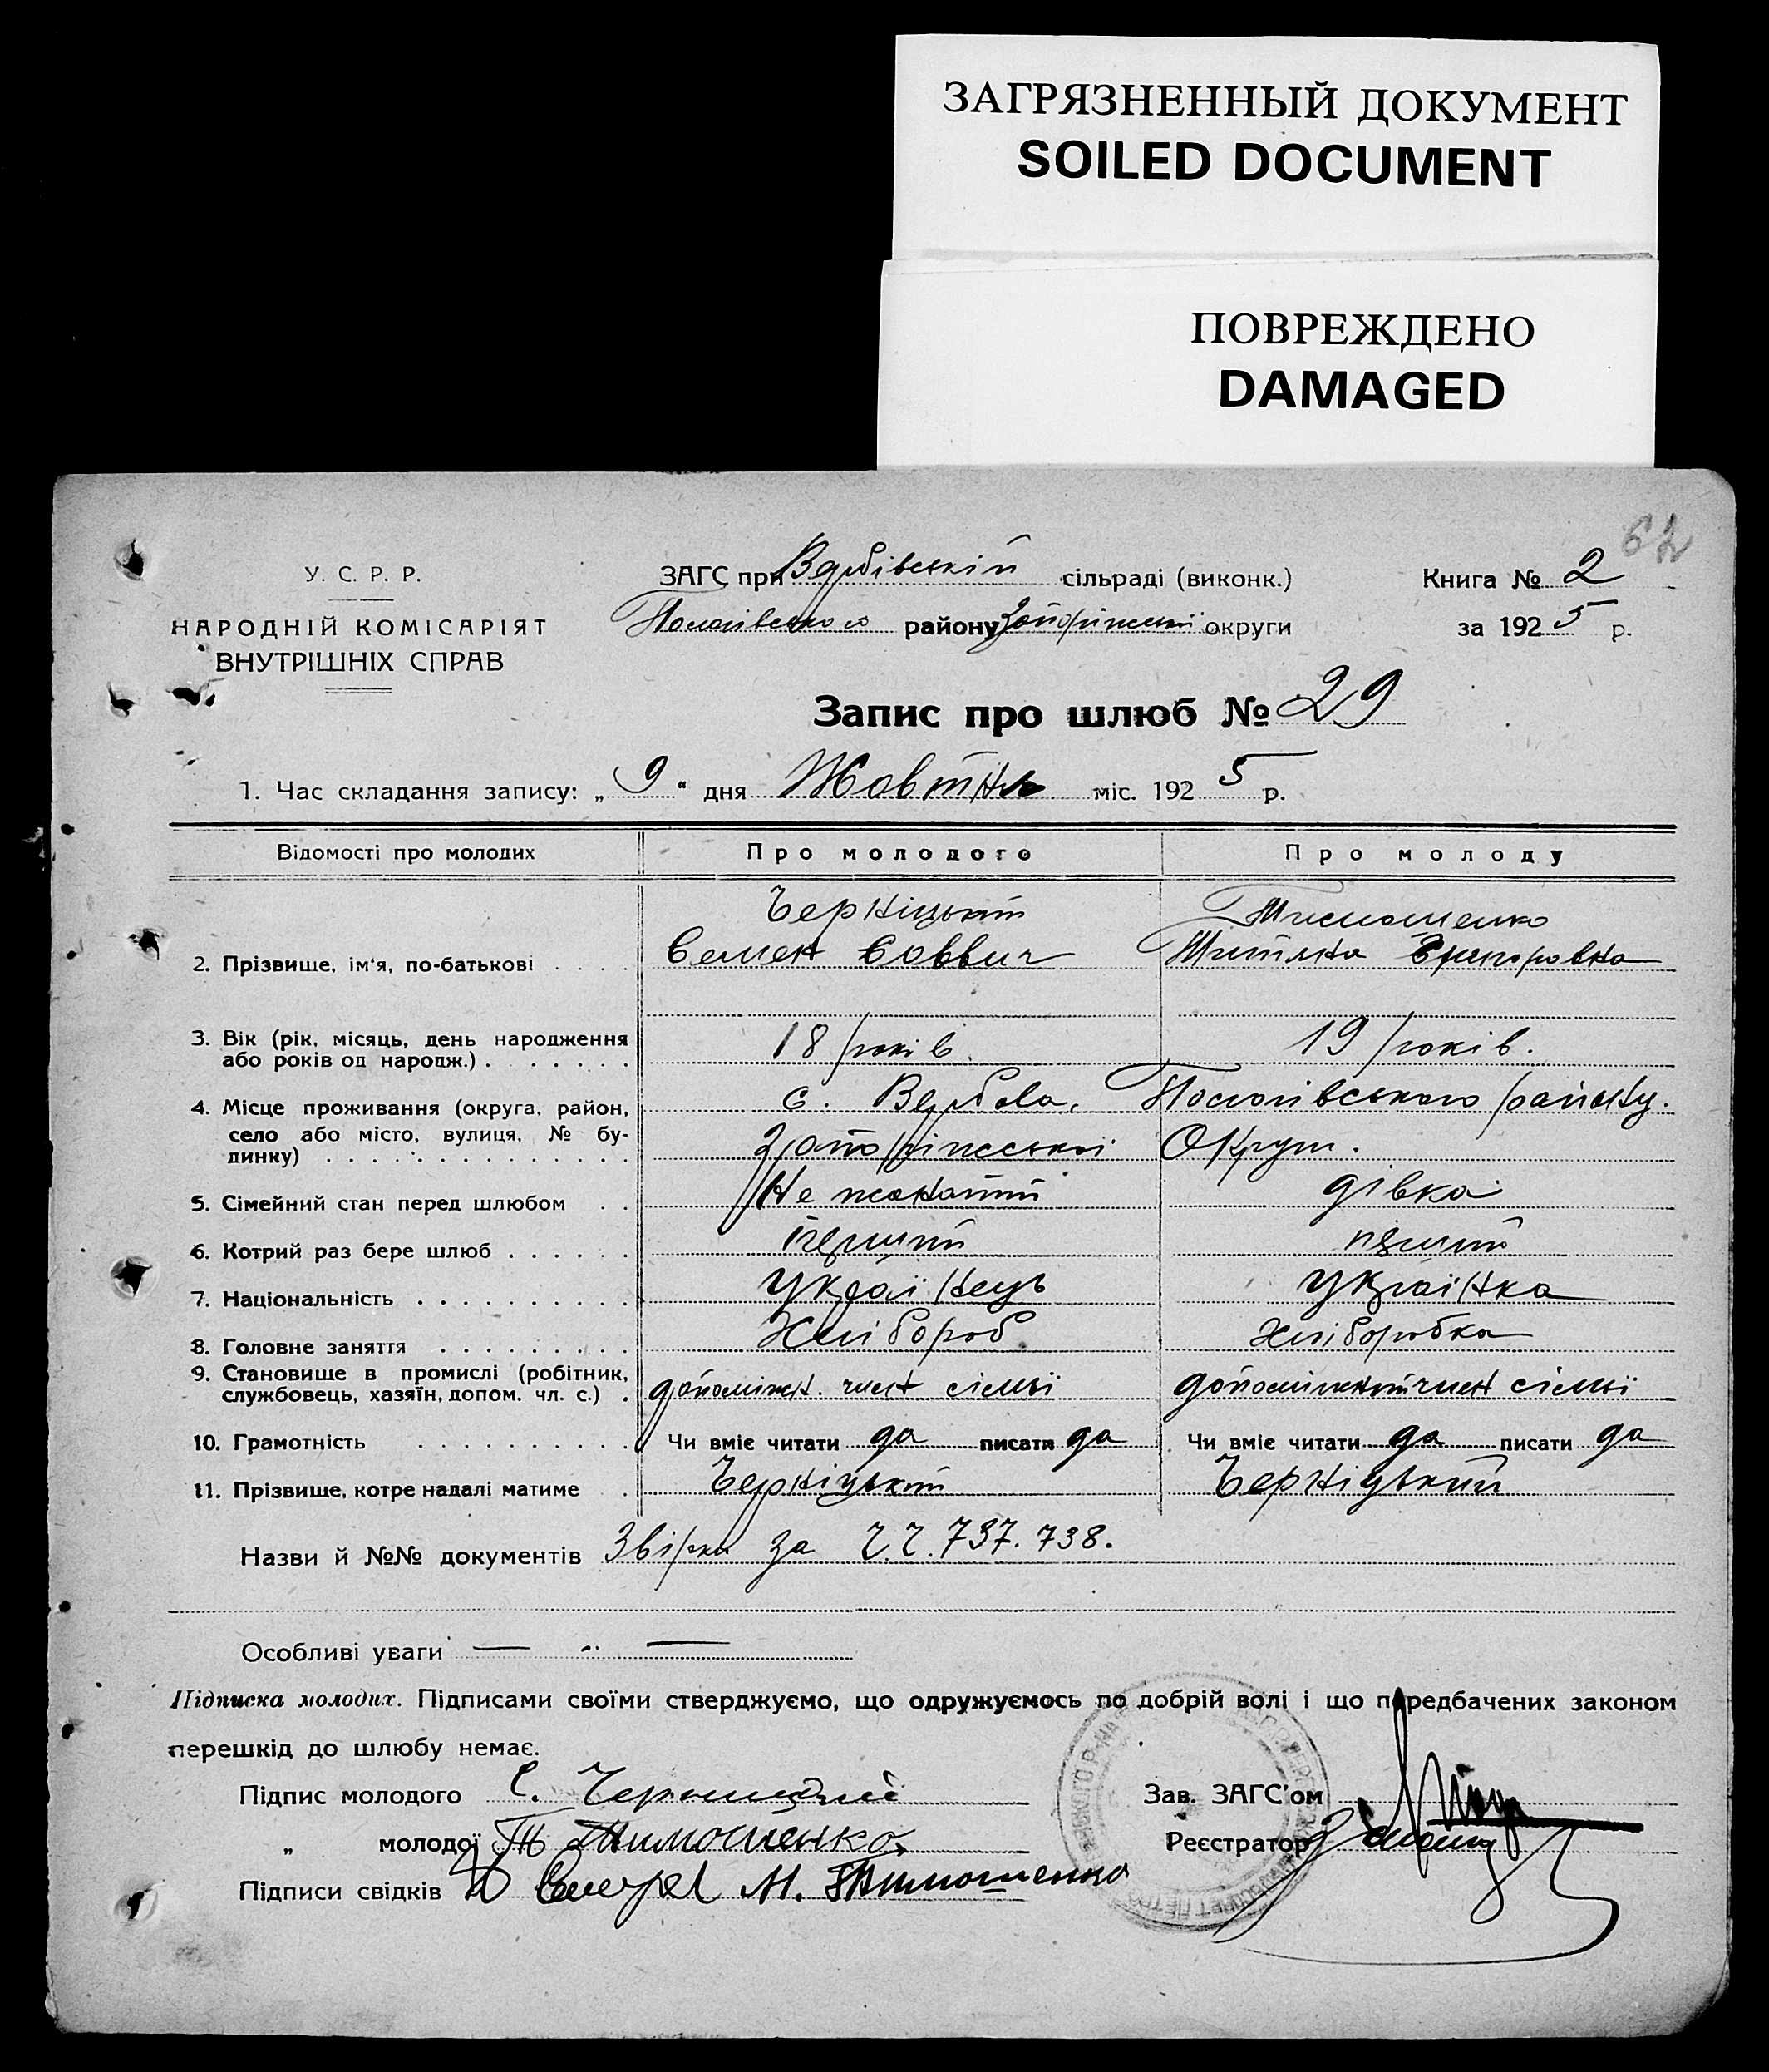 ЗАГРЯЗНЕННЫЙ ДОКУМЕНТ
SOILED DOCUMENT
ПОВРЕЖДЕНО
DAMAGED
62
У. С. Р. Р.
НАРОДНІЙ КОМІСАРІЯТ
ВНУТРІШНІХ СПРАВ
ЗАГС при Вербівській сільраді (виконк.)
Пологівського району Запоріжської округи
Книга № 2
за 1925 р.
Запис про шлюб № 29
1. Час складання запису: „9" дня Жовтня міс. 1925 р.
Відомості про молодих Про молодого Про молоду
Черніцький Тимошенко
2. Прізвище, ім'я, по-батькові . . . . Семен Саввич Григоровна
3. Вік (рік, місяць, день народження
або років од народж.) . . . . . . 18 років 19 років.
4. Місце проживання (округа, район, с. Вербова, Пологівського району.
село або місто, вулиця, № бу-
динку) . . . . . . . . . . . . . . Запоріжської Округи.
5. Сімейний стан перед шлюбом . . Не жонатий дівка
6. Котрий раз бере шлюб . . . . . . перший перший
7. Національність . . . . . . . . . . Українець Українка
8. Головне заняття . . . . . . . . . Хлібороб хліборобка
9. Становище в промислі (робітник,
службовець, хазяїн, допом. чл. с.) . допоміжн. член сімьї допоміжний член сімьї
10. Грамотність . . . . . . . . . . Чи вміє читати да писати да Чи вміє читати да писати да
11. Прізвище, котре надалі матиме . Черніцький Черніцький
Назви й №№ документів Звірки за Ч.Ч. 737. 738.
Особливі уваги — „ —
Підписка молодих. Підписами своїми стверджуємо, що одружуємось по добрій волі і що передбачених законом
перешкід до шлюбу немає.
Підпис молодого С. Черницкий
„ молодої Т Тимошенко
Підписи свідків М. Тимошенко
Зав. ЗАГС'ом
Реєстратор